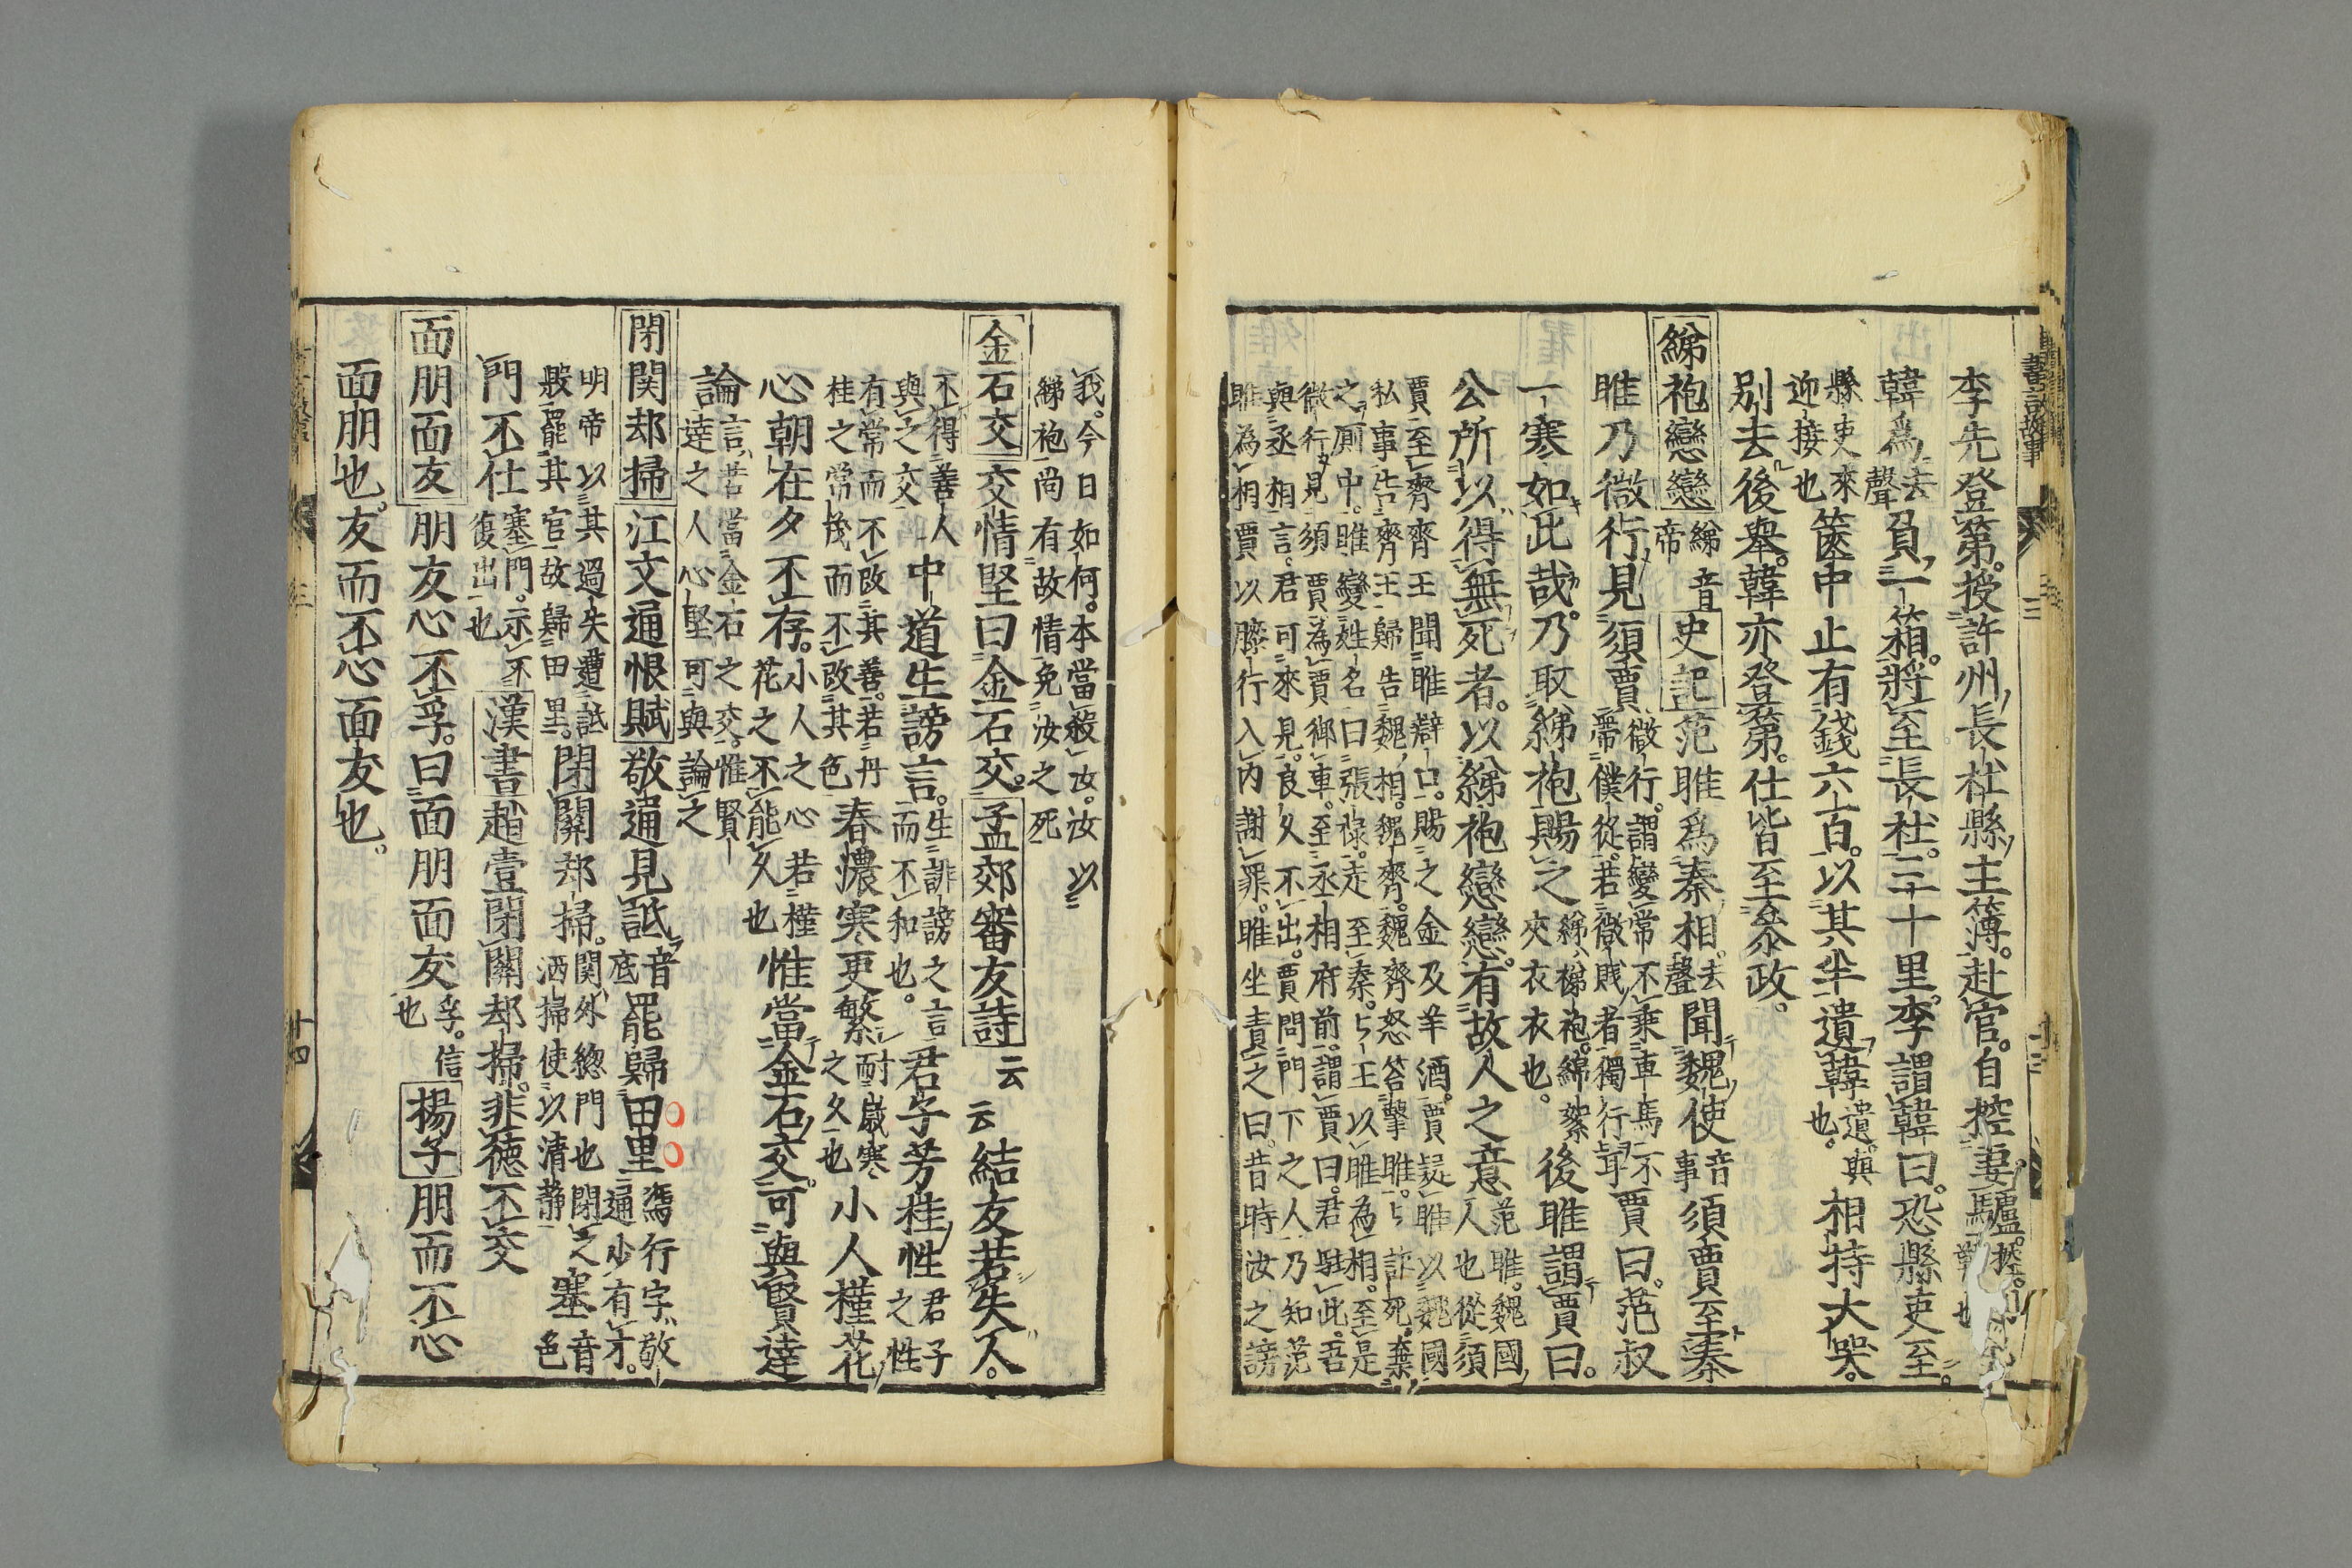 李先登第。授許州長社縣主簿。赴官。自控妻驢。
韓爲去聲負一箱。將至長社。三十里。李謂韓曰。恐縣吏至。
縣吏來迎接也篋中止有錢六百。以其半遺韓遺。與也。相持大哭。
別去後舉。韓亦登第。仕皆至參政。
綈袍戀戀綈音帝史記范雎爲秦相。去聲聞魏使音事須賈至秦
雎乃微行見須賈微行。謂變常不乘車馬不帶僕從。若微賤者獨行耳賈曰。范叔
一寒如此哉。乃取綈袍賜之綈梯袍。綿絮夾衣衣也。後雎謂賈曰。
公所以得無死者。以綈袍戀戀。有故人之意范雎。魏國人也從須
賈至齊齊王聞雎辯口。賜之金及羊酒。賈疑雎以魏國
私事告齊王歸告魏相。魏齊。魏齊怒笞擊雎。雎詐死。棄
之厠中。雎變姓名曰張祿。走至秦。秦王以雎為相。至是
微行見須賈為賈御車。至丞相府前。謂賈曰。君駐此。吾
與丞相言。君可來見。良久不出。賈問門下之人乃知范
雎為相賈以膝行入內謝罪。雎坐責之曰。昔時汝之謗
我。今日如何。本當殺汝。汝以
綈袍尚有故情免汝之死
金石交交情堅曰金石交。孟郊審友詩云云結友若失人。
不得善人與之交中道生謗言。生誹謗之言而不和也。君子芳桂性君子之性
有常而不改其善。若丹桂之常茂而不改其色春濃寒更繁耐歲寒之久也小人槿花
心朝在夕不存。小人之心若槿花之不能久也惟當金石交。可與賢達
論言若當金石之交。惟賢達之人心堅可與論之
閉関却掃江文通恨賦敬通見詆音底罷歸田里馮行字敬通少有才。
明帝以其過失遭詆殺罷其官故歸田里。閉關却掃。関外總門也閉之塞音色洒掃使以清静
門不仕塞門。示不復出也漢書趙壹閉關却掃。非德不交
面朋面友朋友心不孚。曰面朋面友孚。信也揚子朋而不心
面朋也。友而不心面友也。